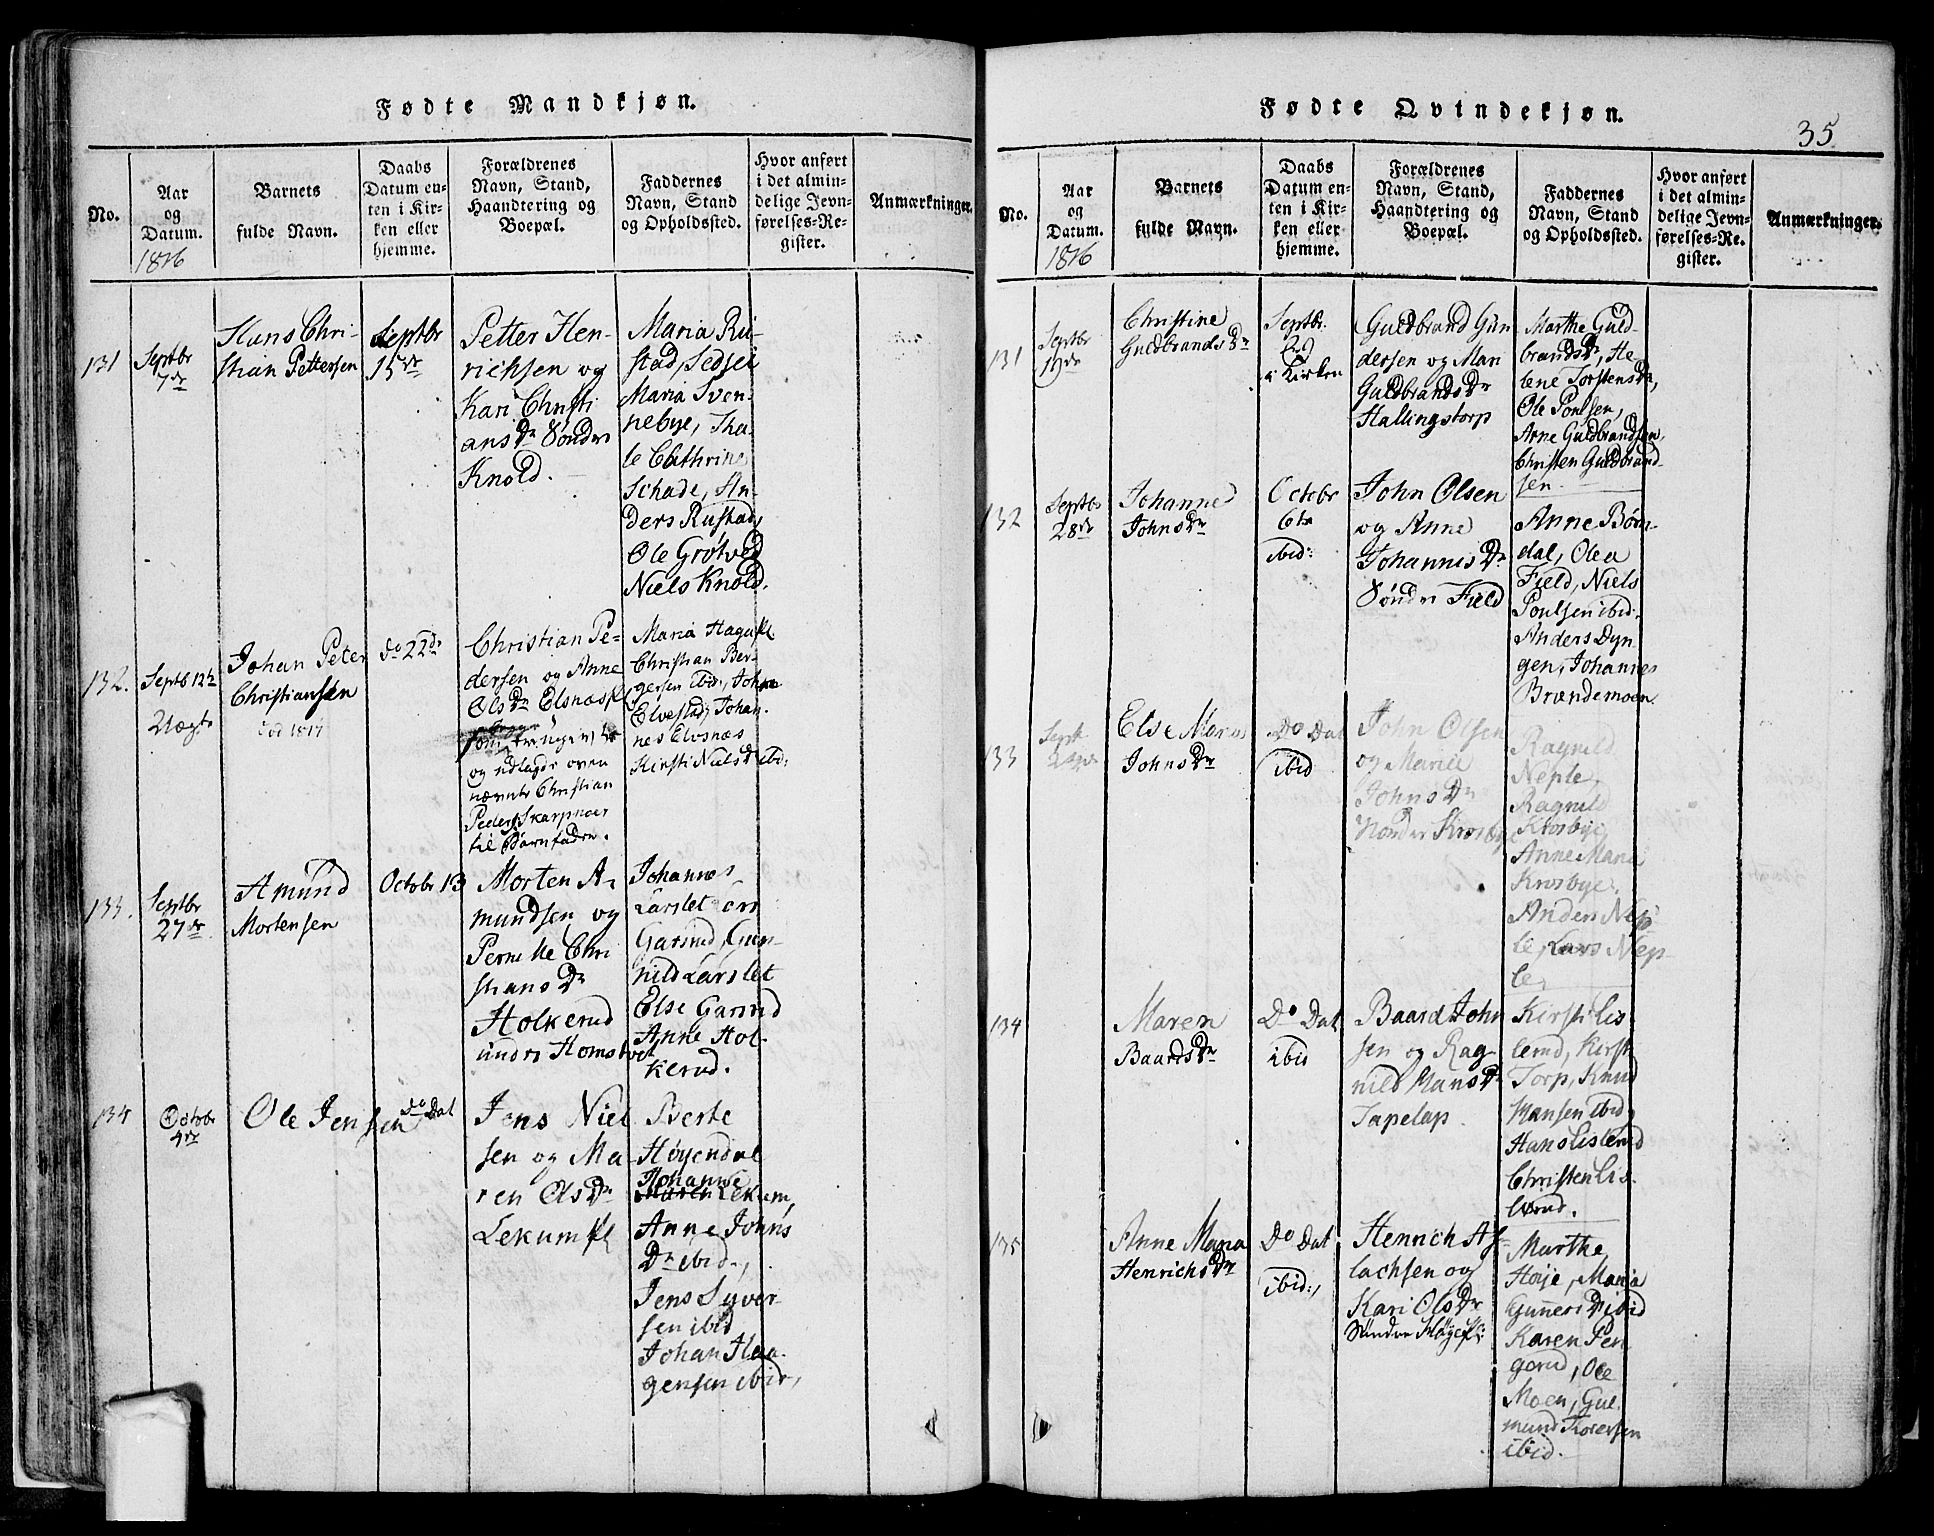 Fødte Mandkjøn.
No.
Aar
og
Datum.
1816
Barnets
fulde Navn.
Daabs
Datum en-
ten i Kir-
ken eller
hjemme.
Forældrenes
Navn, Stand,
Haandtering og
Boepæl.
Faddernes
Navn, Stand
og Opholdssted.
Hvor anført
i det almin-
delige Jevn-
førelses-Re-
gister.
Anmærkninger.
131
Septbr
7de
Hans Chri-
stian Pettersen
Septbr
15de
Petter Hen-
richsen og
Kari Christi
ans Dr Sønder
Knold.
Maria Ru-
stad, Sedsel
Maria Sven-
nebye, Tha-
le Cathrine
Schade, An-
ders Rustad,
Ole Grøtved
Niels Knold.
132.
Septb 12te
Uægte
Johan Peter
Christiansen
død 1817
do 22de
Christian Pe-
dersen og Anne
Ols Dr Elsnæs Pl
og udlagde oven
nævnte Christian
Peders Skarpnoer
til Barnfader.
Maria Haga Pl
Christian Ber-
gersen ibid:, John
Elvestad, Johan-
nes Elvsnæs
Kirsti Niels D ibid:
133.
Septbr
27de
Amund
Mortensen
Octobr 13
Morten A-
mundsen og
Pernille Chri
stians Dr
Holkerud
under Homstvet
Johannes
Larslet
Garsrud, Gun-
nild Larslet
Else Garsrud
Anne Hol-
kerud.
134
Octobr
4de
Ole Jensen
do Dat
Jens Niel
sen og Ma-
ren Ols Dr
Lekum Pl
Berte
Høyendal
Johanne
Maren Lekum,
Anne Johns
Dr ibid:,
Jens Syver-
sen ibid
Johan Haa-
gensen ibid,
Fødte Qvindekjøn.
35
No.
Aar
og
Datum.
1816
Barnets
fulde Navn.
Daabs
Datum en-
ten i Kir-
ken eller
hjemme.
Forældrenes
Navn, Stand,
Haandtering og
Boepæl.
Faddernes
Navn, Stand
og Opholdssted.
Hvor anført
i det almin-
delige Jevn-
førelses-Re-
gister.
Anmærkninger.
131
Septbr
19de
Christine
Guldbrands Dr
Septbr.
29
i Kirken
Guldbrand Gun
dersen og Mari
Guldbrands Dr
Hallingstorp
Marthe Guld-
brands Dr, He-
lene Torstens Dr,
Ole Poulsen,
Arne Guldbrandsen,
Christen Guldbrand-
sen.
132
Septbr
28de
Johanne
Johns Dr
Octobr
6te
ibid:
John Olsen
og Anne
Johannis Dr
Søndre Field
Anne Bøn-
dal, Olea
Field, Niels
Poulsen ibid:
Anders Dyn
gen, Johannes
Brændemoen
133
Septb
Else Maria
Johns Dr
Do Dat
ibid
John Olsen
og Marie
Johns Dr
Nordre Krosbye
Ragnild
Neple,
Ragnild
Krosbye,
Anne Maria
Krosbye,
Anders Nep
le, Lars Nep-
le,
134
Maren
Baards Dr
Do Dat
ibid
Baard John
sen og Rag-
nild Hans Dr
Tapelap.
Kirsti Lis
lerud, Kirsti
Torp, Knud
Hansen ibid,
Hans Lislerud
Christen Lis-
lerud.
135
Anne Maria
Henrichs Dr
Do Dat
ibid:,
Henrich As-
lachsen og
Kari Ols Dr
Søndre Høye Pl:
Marthe
Høije, Maria
Gunners D ibid
Karen Pen
gerud, Ole
Moen, Gul-
mund Torersen
ibid.